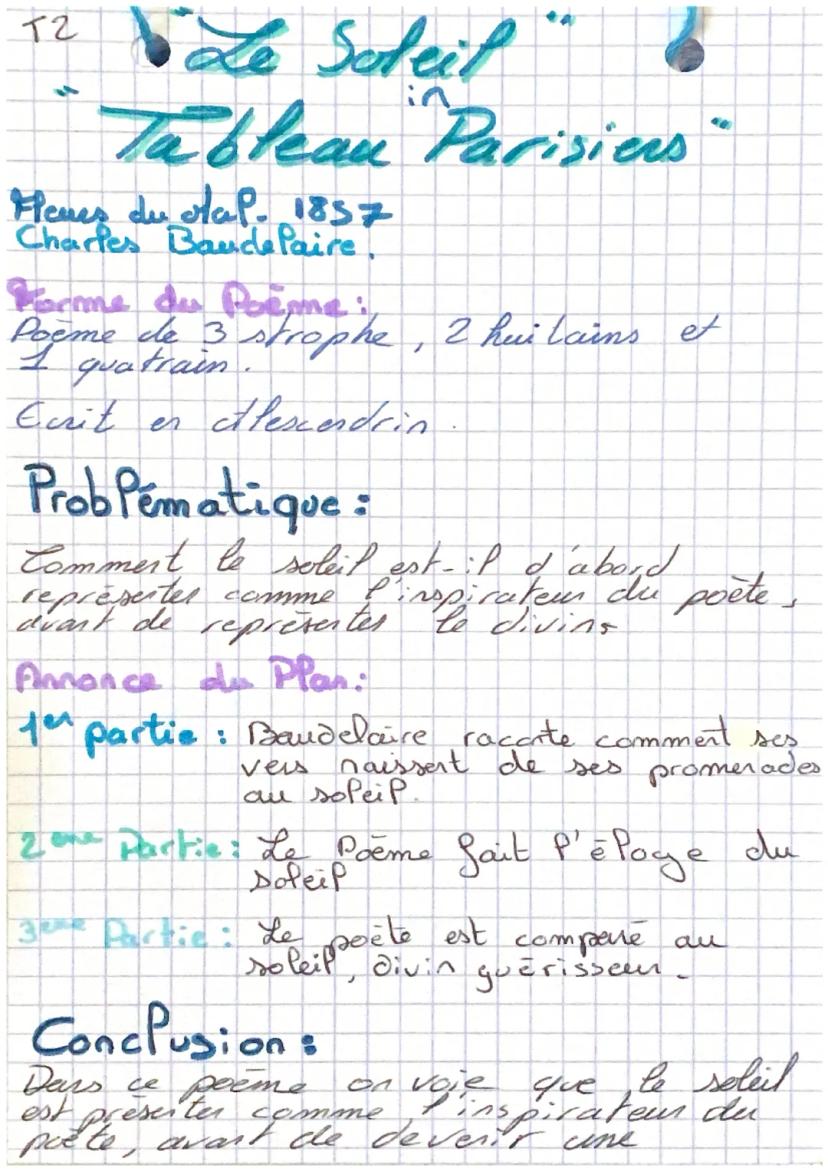 T2
"Le Soleil"
in
"Tableau Parisiens"
Fleurs du Mal. 1857
Charles Baudelaire.
Forme du Poème :
Poème de 3 strophe, 2 huitains et
1 quatrain.
Ecrit en Alexendrin.
Problématique :
Comment le soleil est-il d'abord
représenter comme l'inspirateur du poète,
avant de représenter le divin.
Annonce du Plan :
1er partie : Baudelaire raconte comment ses
vers naissent de ses promenades
au soleil.
2eme Partie : Le Poème fait l'éloge du
soleil
3eme Partie : Le poète est comparé au
soleil, divin guérisseur.
Conclusion :
Dans ce poème on voie que le soleil
est présenter comme l'inspirateur du
poète, avant de devenir une